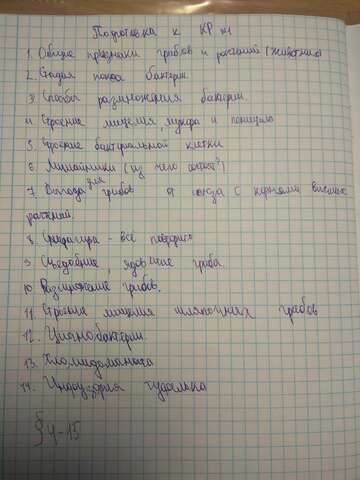 Подготовка к КР №
1. Общие признаки грибов и растений (животных)
2. Стадия покоя бактерии
3. Способы размножения бактерии.
4. Строение мицелия, мукора и пеницилла
5. Строение бактериальной клетки
6. Лишайники (из чего состоят?)
7. Выгода для грибов от союза с корнями высших
растений.
8. - всё повторить
9. Съедобные, ядовитые гриба
10. Размножение грибов.
11. Строение мицелия шляпочных грибов
12. Цианобактерии
13. Хламидомонада
14. Инфузория туфелька
§ 4-15